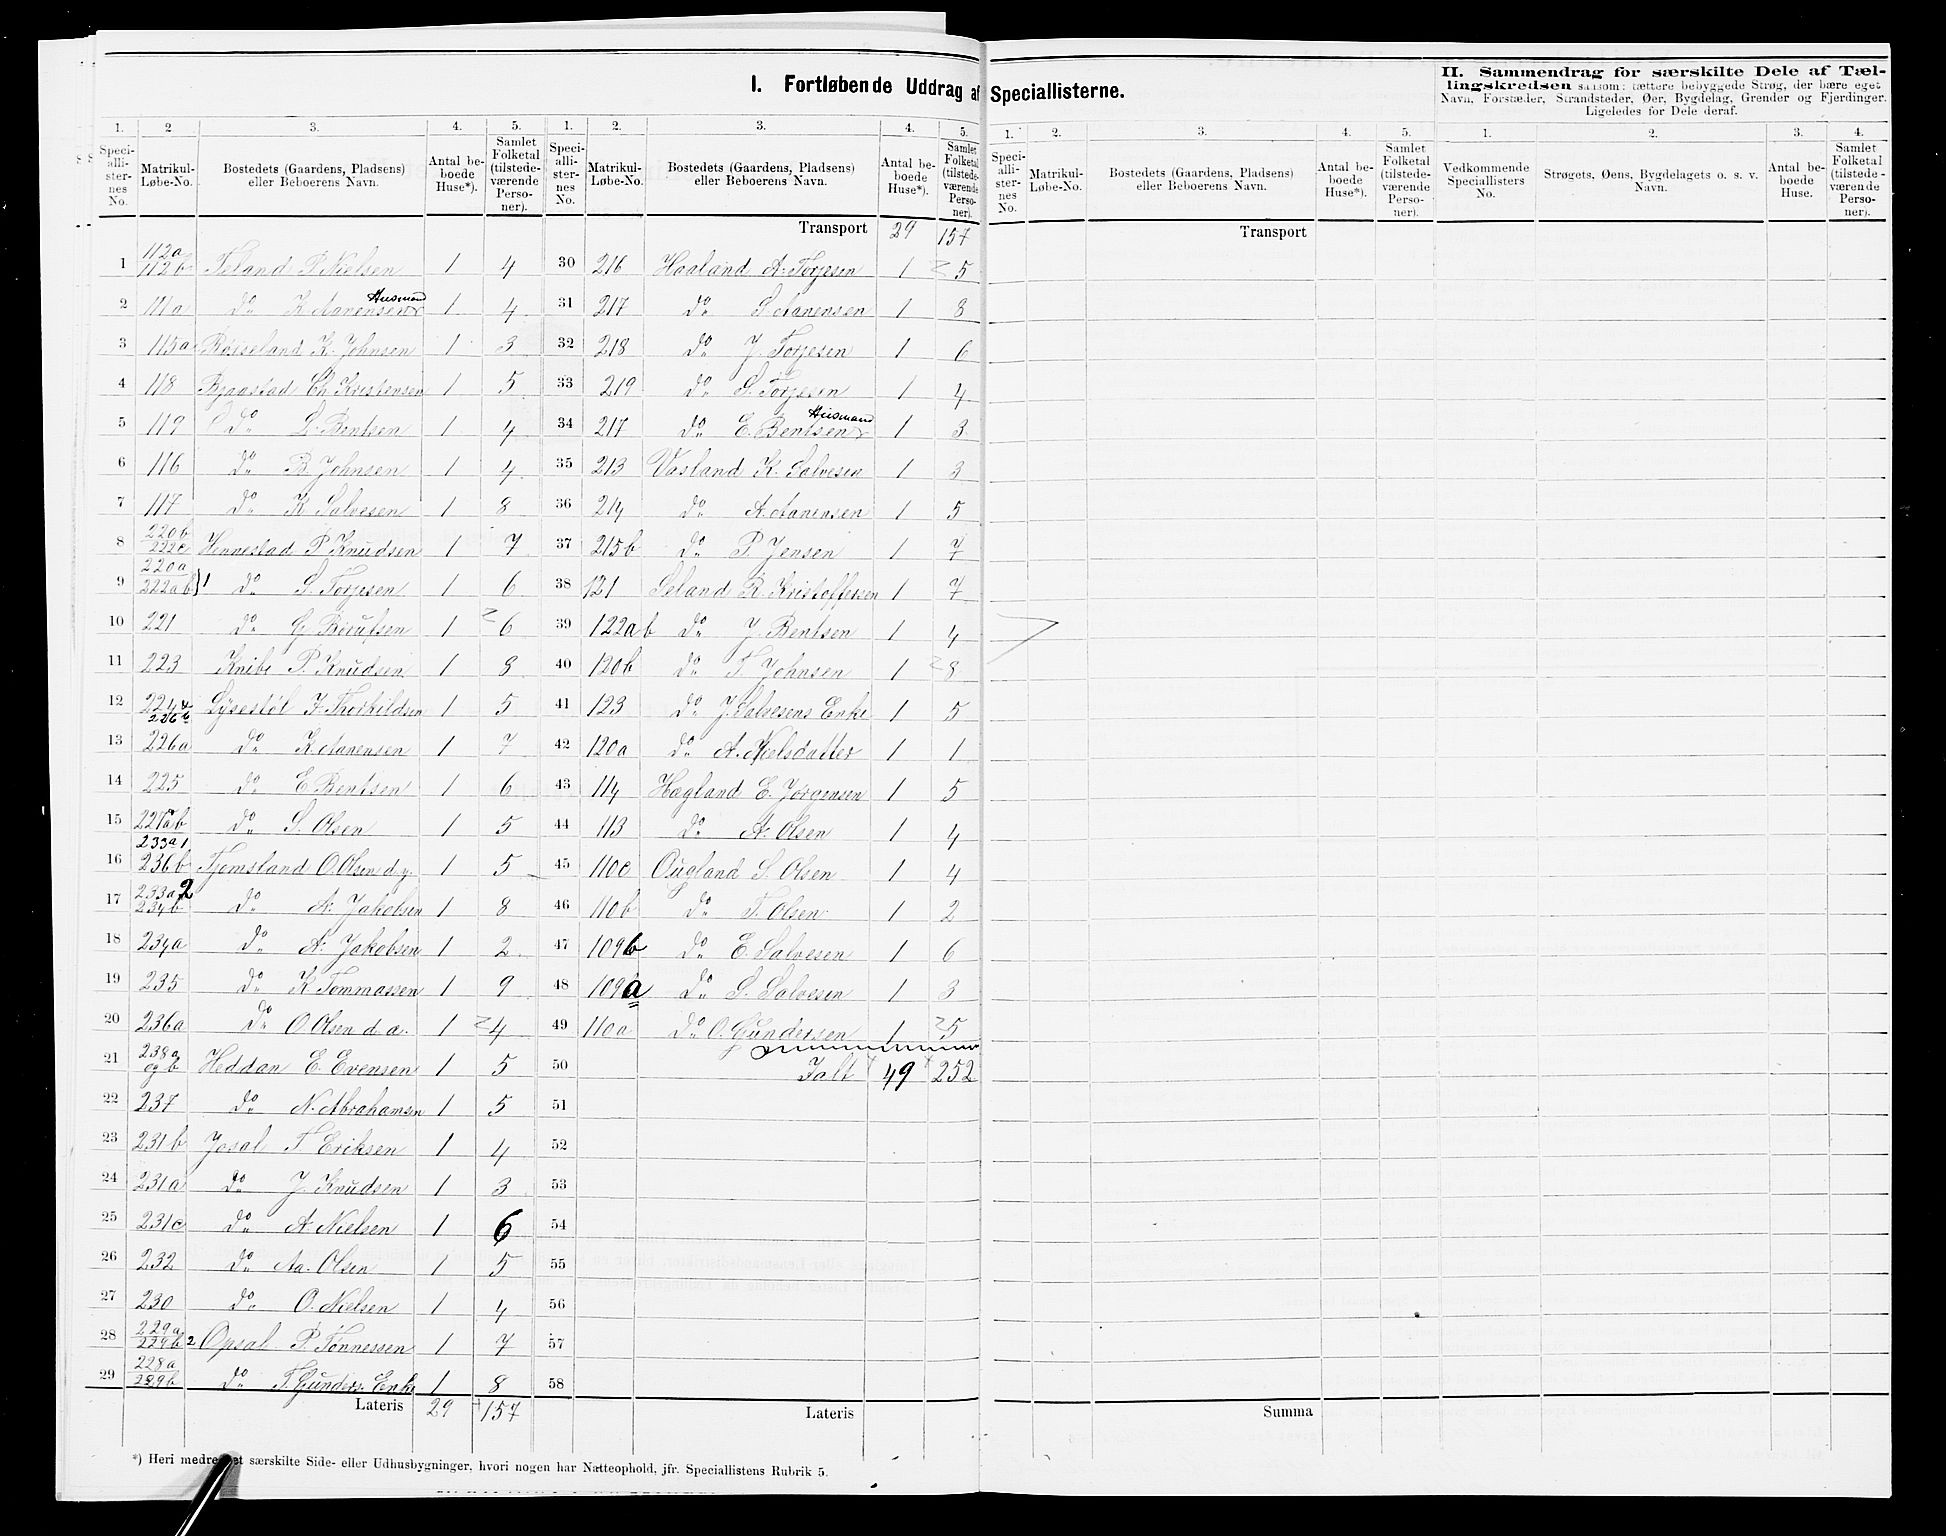 I. Fortløbende Uddrag af Speciallisterne.
II. Sammendrag for særskilte Dele af Tællingskredsen saasom: tættere bebyggede Strøg, der bære eget Navn, Forstæder, Strandsteder, Øer, Bygdelag, Grender og Fjerdinger. Ligeledes for Dele deraf.
1. 2 3. 4. 5. 1. 2. 3. 4. 5. 1. 2. 3. 4. 5. 1. 2. 3. 4.
Speciallisternes No. Matrikul-Løbe-No. Bostedets (Gaardens, Pladsens) eller Beboerens Navn. Antal beboede Huse*). Samlet Folketal (tilstedeværende Personer).
Speciallisternes No. Matrikul-Løbe-No. Bostedets (Gaardens, Pladsens) eller Beboerens Navn. Antal beboede Huse*). Samlet Folketal (tilstedeværende Personer).
Speciallisternes No. Matrikul-Løbe-No. Bostedets (Gaardens, Pladsens) eller Beboerens Navn. Antal beboede Huse*). Samlet Folketal (tilstedeværende Personer).
Vedkommende Speciallisters No. Strøgets, Øens, Bygdelagets o. s. v. Navn. Antal beboede Huse. Samlet Folketal (tilstedeværende Personer).
1 112a 112b Feland P. Nielsen 1 4
2 111a do K. Aanensen Husmand 1 4
3 115a Røiseland K. Johnsen 1 3
4 118 Bjaastad Ch. Kristensen 1 5
5 119 do L. Bentsen 1 4
6 116 do B. Johnsen 1 4
7 117 do K. Salvesen 1 8
8 220b 222c Hennestad P. Knudsen 1 7
9 220a 222ab 1 do S. Torjesen 1 6
10 221 do G. Beruldsen 1 6
11 223 Knibe P. Knudsen 1 8
12 224 226b Lysestøl J. Thorkildsen 1 5
13 226a do K. Aanensen 1 7
14 225 do E. Bentsen 1 6
15 227ab do S. Olsen 1 5
16 233a1 236b Tjomsland O. Olsen d.y. 1 5
17 233a2 234b do A. Jakobsen 1 8
18 234a do A. Jakobsen 1 2
19 235 do K. Tommassen 1 9
20 236a do O. Olsen d. æ. 1 4
21 238a og b Heddan E. Evensen 1 5
22 237 do N. Abrahamsen 1 5
23 231b Josal T. Eriksen 1 4
24 231a do J. Knudsen 1 3
25 231c do A. Nielsen 1 6
26 232 do Aa. Olsen 1 5
27 230 do O. Nielsen 1 4
28 229a 229b2 Opsal P. Tønnessen 1 7
29 228a 229b do T. Gunders. Enke 1 8
Lateris 29 157
Transport 29 157
30 216 Haaland A. Torjesen 1 5
31 217 do S. Aanensen 1 8
32 218 do J. Torjesen 1 6
33 219 do S. Torjesen 1 4
34 217 do E. Bentsen Husmand 1 3
35 213 Vasland K. Salvesen 1 3
36 214 do A. Aanensen 1 5
37 215b do P. Jensen 1 7
38 121 Seland R. Kristoffersen 1 7
39 122ab do J. Bentsen 1 4
40 120b do T. Johnsen 1 8
41 123 do J. Salvesens Enke 1 5
42 120a do A. Nielsdatter 1 1
43 114 Hægland E. Jørgensen 1 5
44 113 do A. Olsen 1 4
45 110c Øugland S. Olsen 1 4
46 110b do T. Olsen 1 2
47 109b do E. Salvesen 1 6
48 109a do S. Salvesen 1 3
49 110a do O. Gundersen 1 5
50 Ialt 49 252
51
52
53
54
55
56
57
58
Lateris
Transport
Summa
*) Heri medregnet særskilte Side- eller Udhusbygninger, hvori nogen har Natteophold, jfr. Speciallistens Rubrik 5.